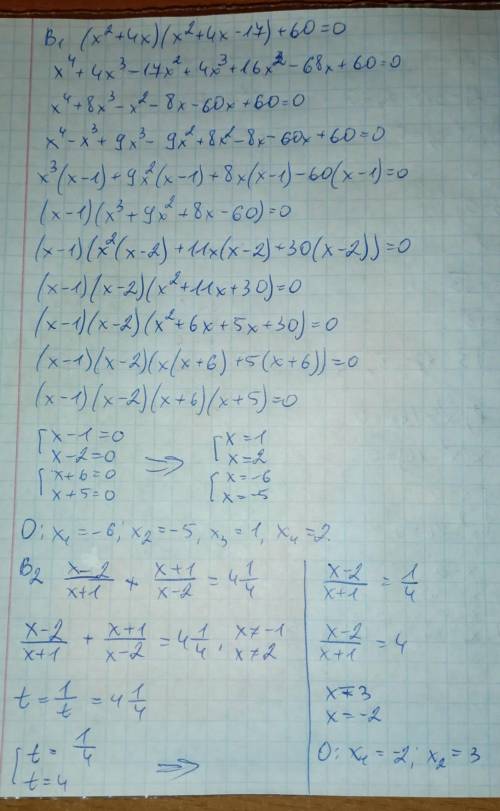 B₁ (x²+4x)(x²+4x-17)+60=0
x⁴+4x³-17x²+4x³+16x²-68x+60=0
x⁴+8x³-x²-8x-60x+60=0
x⁴-x³+9x³-9x²+8x²-8x-60x+60=0
x³(x-1)+9x²(x-1)+8x(x-1)-60(x-1)=0
(x-1)(x³+9x²+8x-60)=0
(x-1)(x²(x-2)+11x(x-2)+30(x-2))=0
(x-1)(x-2)(x²+11x+30)=0
(x-1)(x-2)(x²+6x+5x+30)=0
(x-1)(x-2)(x(x+6)+5(x+6))=0
(x-1)(x-2)(x+6)(x+5)=0
[x-1=0
x-2=0
[x+6=0
x+5=0
=>
[x=1
x=2
[x=-6
x=-5
O: x₁=-6; x₂=-5, x₃=1, x₄=2.
B₂ (x-2)/(x+1) + (x+1)/(x-2) = 4 1/4
(x-2)/(x+1) + (x+1)/(x-2) = 4 1/4, x≠-1
x≠2
t = 1/t = 4 1/4
[t = 1/4
t=4
=>
(x-2)/(x+1) = 1/4
(x-2)/(x+1) = 4
x=3
x=-2
O: x₁=-2; x₂=3